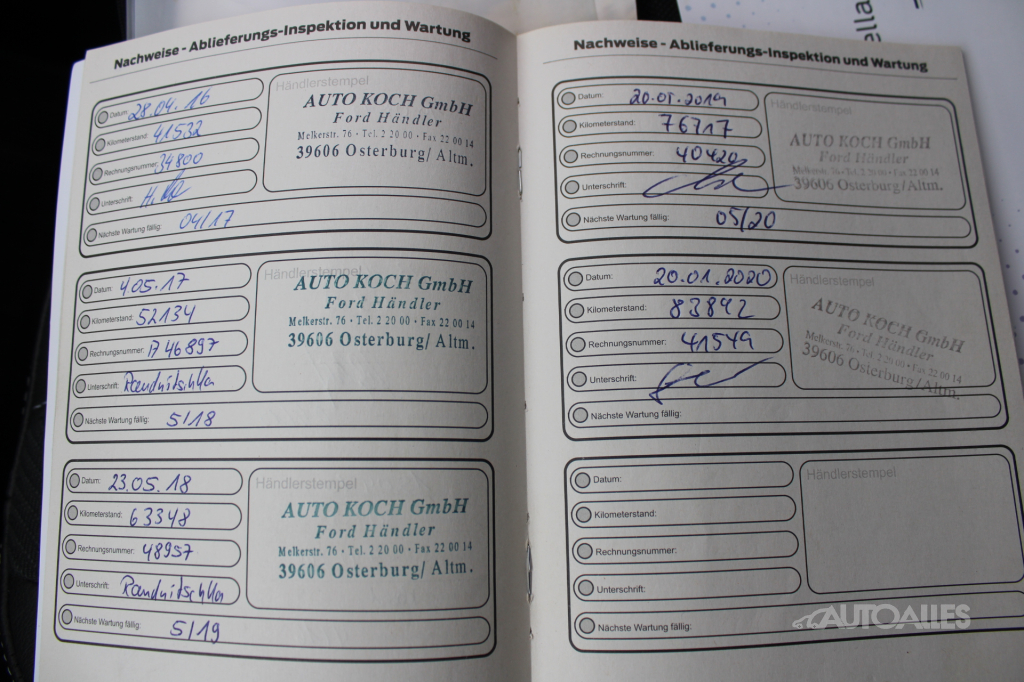 ella
Nachweise - Ablieferungs-Inspektion und Wartung
Datum: 28.04.16
Kilometerstand: 41532
Rechnungsnummer: 34800
Unterschrift:
Nächste Wartung fällig: 04/17
Händlerstempel
AUTO KOCH GmbH
Ford Händler
Melkerstr. 76 · Tel. 2 20 00 · Fax 22 00 14
39606 Osterburg/ Altm.
Datum: 405.17
Kilometerstand: 52134
Rechnungsnummer: 1746897
Unterschrift:
Nächste Wartung fällig: 5/18
Händlerstempel
AUTO KOCH GmbH
Ford Händler
Melkerstr. 76 · Tel. 2 20 00 · Fax 22 00 14
39606 Osterburg/ Altm.
Datum: 23.05.18
Kilometerstand: 63348
Rechnungsnummer: 48957
Unterschrift:
Nächste Wartung fällig: 5/19
Händlerstempel
AUTO KOCH GmbH
Ford Händler
Melkerstr. 76 · Tel. 2 20 00 · Fax 22 00 14
39606 Osterburg/ Altm.
Nachweise - Ablieferungs-Inspektion und Wartung
Datum: 20.05.2019
Kilometerstand: 76717
Rechnungsnummer: 40420
Unterschrift:
Nächste Wartung fällig: 05/20
Händlerstempel
AUTO KOCH GmbH
Ford Händler
Melkerstr. 76 · Tel. 2 20 00 · Fax 22 00 14
39606 Osterburg/Altm.
Datum: 20.01.2020
Kilometerstand: 83892
Rechnungsnummer: 41549
Unterschrift:
Nächste Wartung fällig:
Händlerstempel
AUTO KOCH GmbH
Ford Händler
Melkerstr. 76 · Tel. 2 20 00 · Fax 22 00 14
39606 Osterburg/Altm.
Datum:
Kilometerstand:
Rechnungsnummer:
Unterschrift:
Nächste Wartung fällig:
Händlerstempel
AUTOALLES